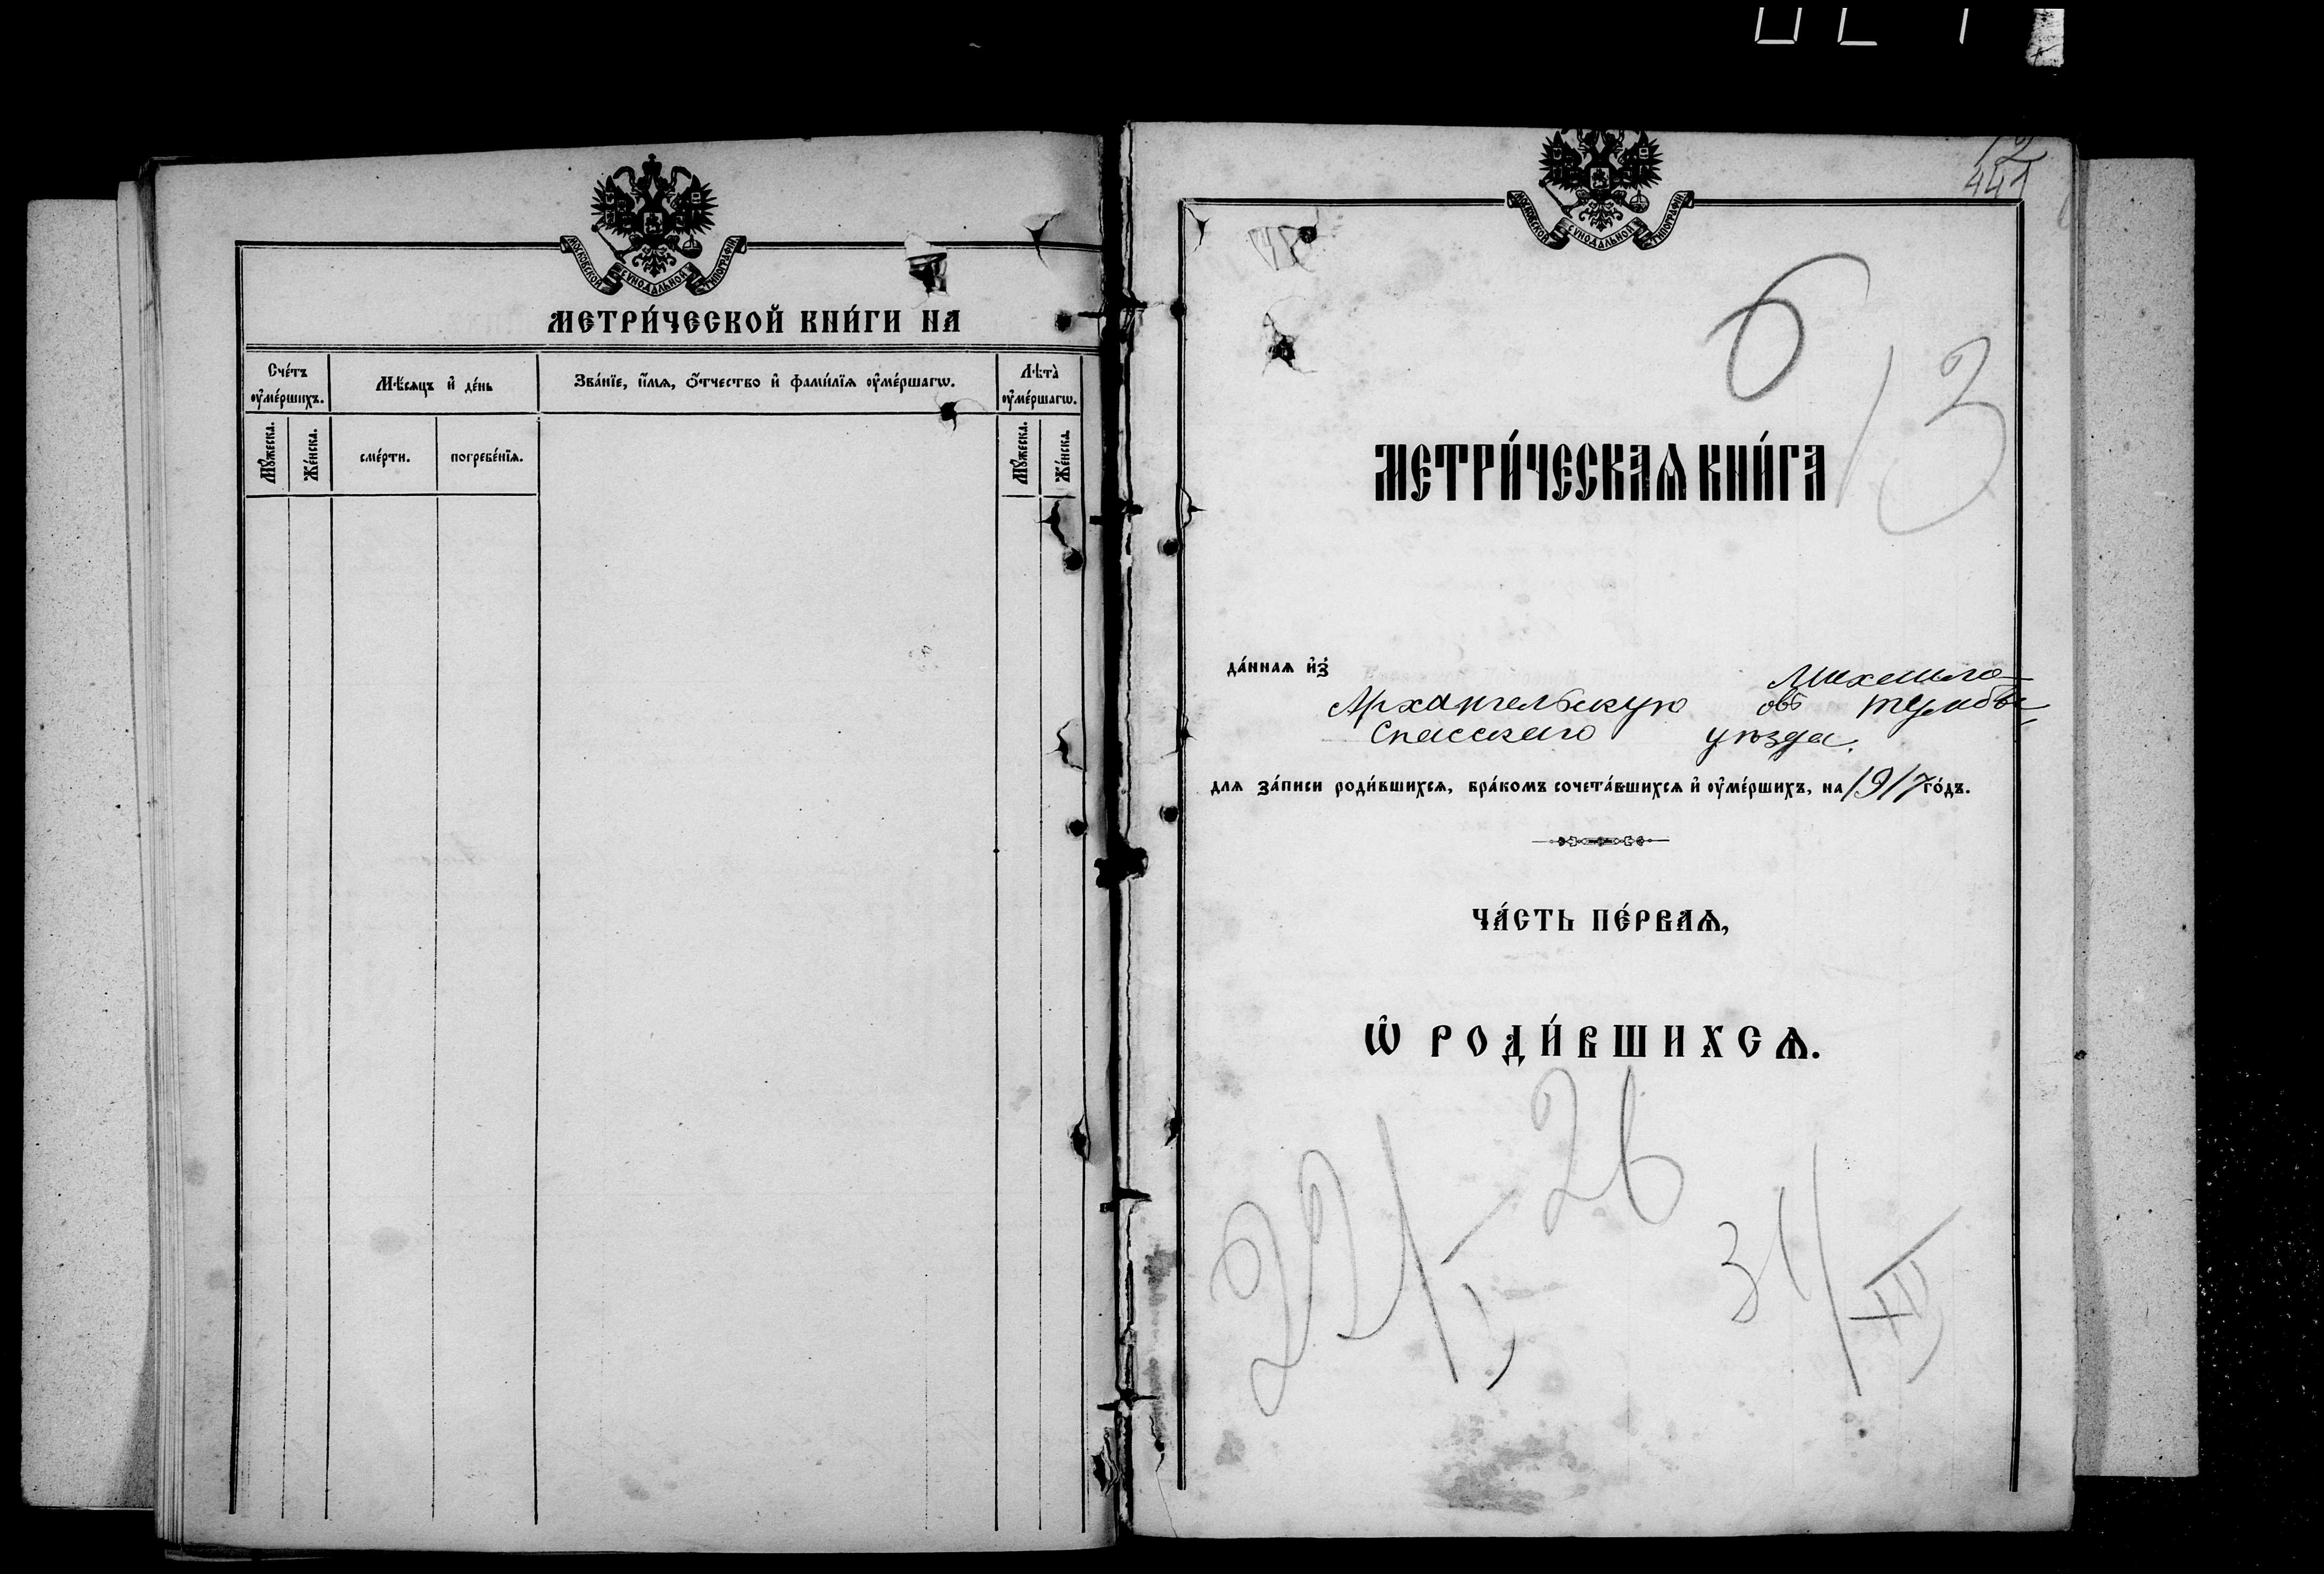 МОСКОВСКОЙ СѴНОДАЛЬНОЙ ТИПОГРАФІИ
МЕТРИ́ЧЕСКОЙ КНИ́ГИ НА
Сче́тъ ᲂу҆ме́ршихъ.
Мѣ́сяцъ и҆ де́нь
Зва́нїе, и҆́мѧ, ѻ҆́тчество и҆ фами́лїѧ ᲂу҆ме́ршагѡ.
Лѣта̀ ᲂу҆ме́ршагѡ.
Мꙋ́жеска.
Же́нска.
сме́рти.
погребе́нїѧ.
Мꙋ́жеска.
Же́нска.
12
441
МОСКОВСКОЙ СѴНОДАЛЬНОЙ ТИПОГРАФІИ
6
13
МЕТРИ́ЧЕСКАѦ КНИ́ГА
да́ннаѧ и҆з̾
Михаило-
Архангельскую
Спасскаго уѣзда.
длѧ за́писи роди́вшихсѧ, бра́комъ сочета́вшихсѧ и҆ ᲂу҆ме́ршихъ, на 1917 го́дъ.
ЧА́СТЬ ПЕ́РВАѦ,
Ѡ҆ РОДИ́ВШИХСѦ.
26
31/XII